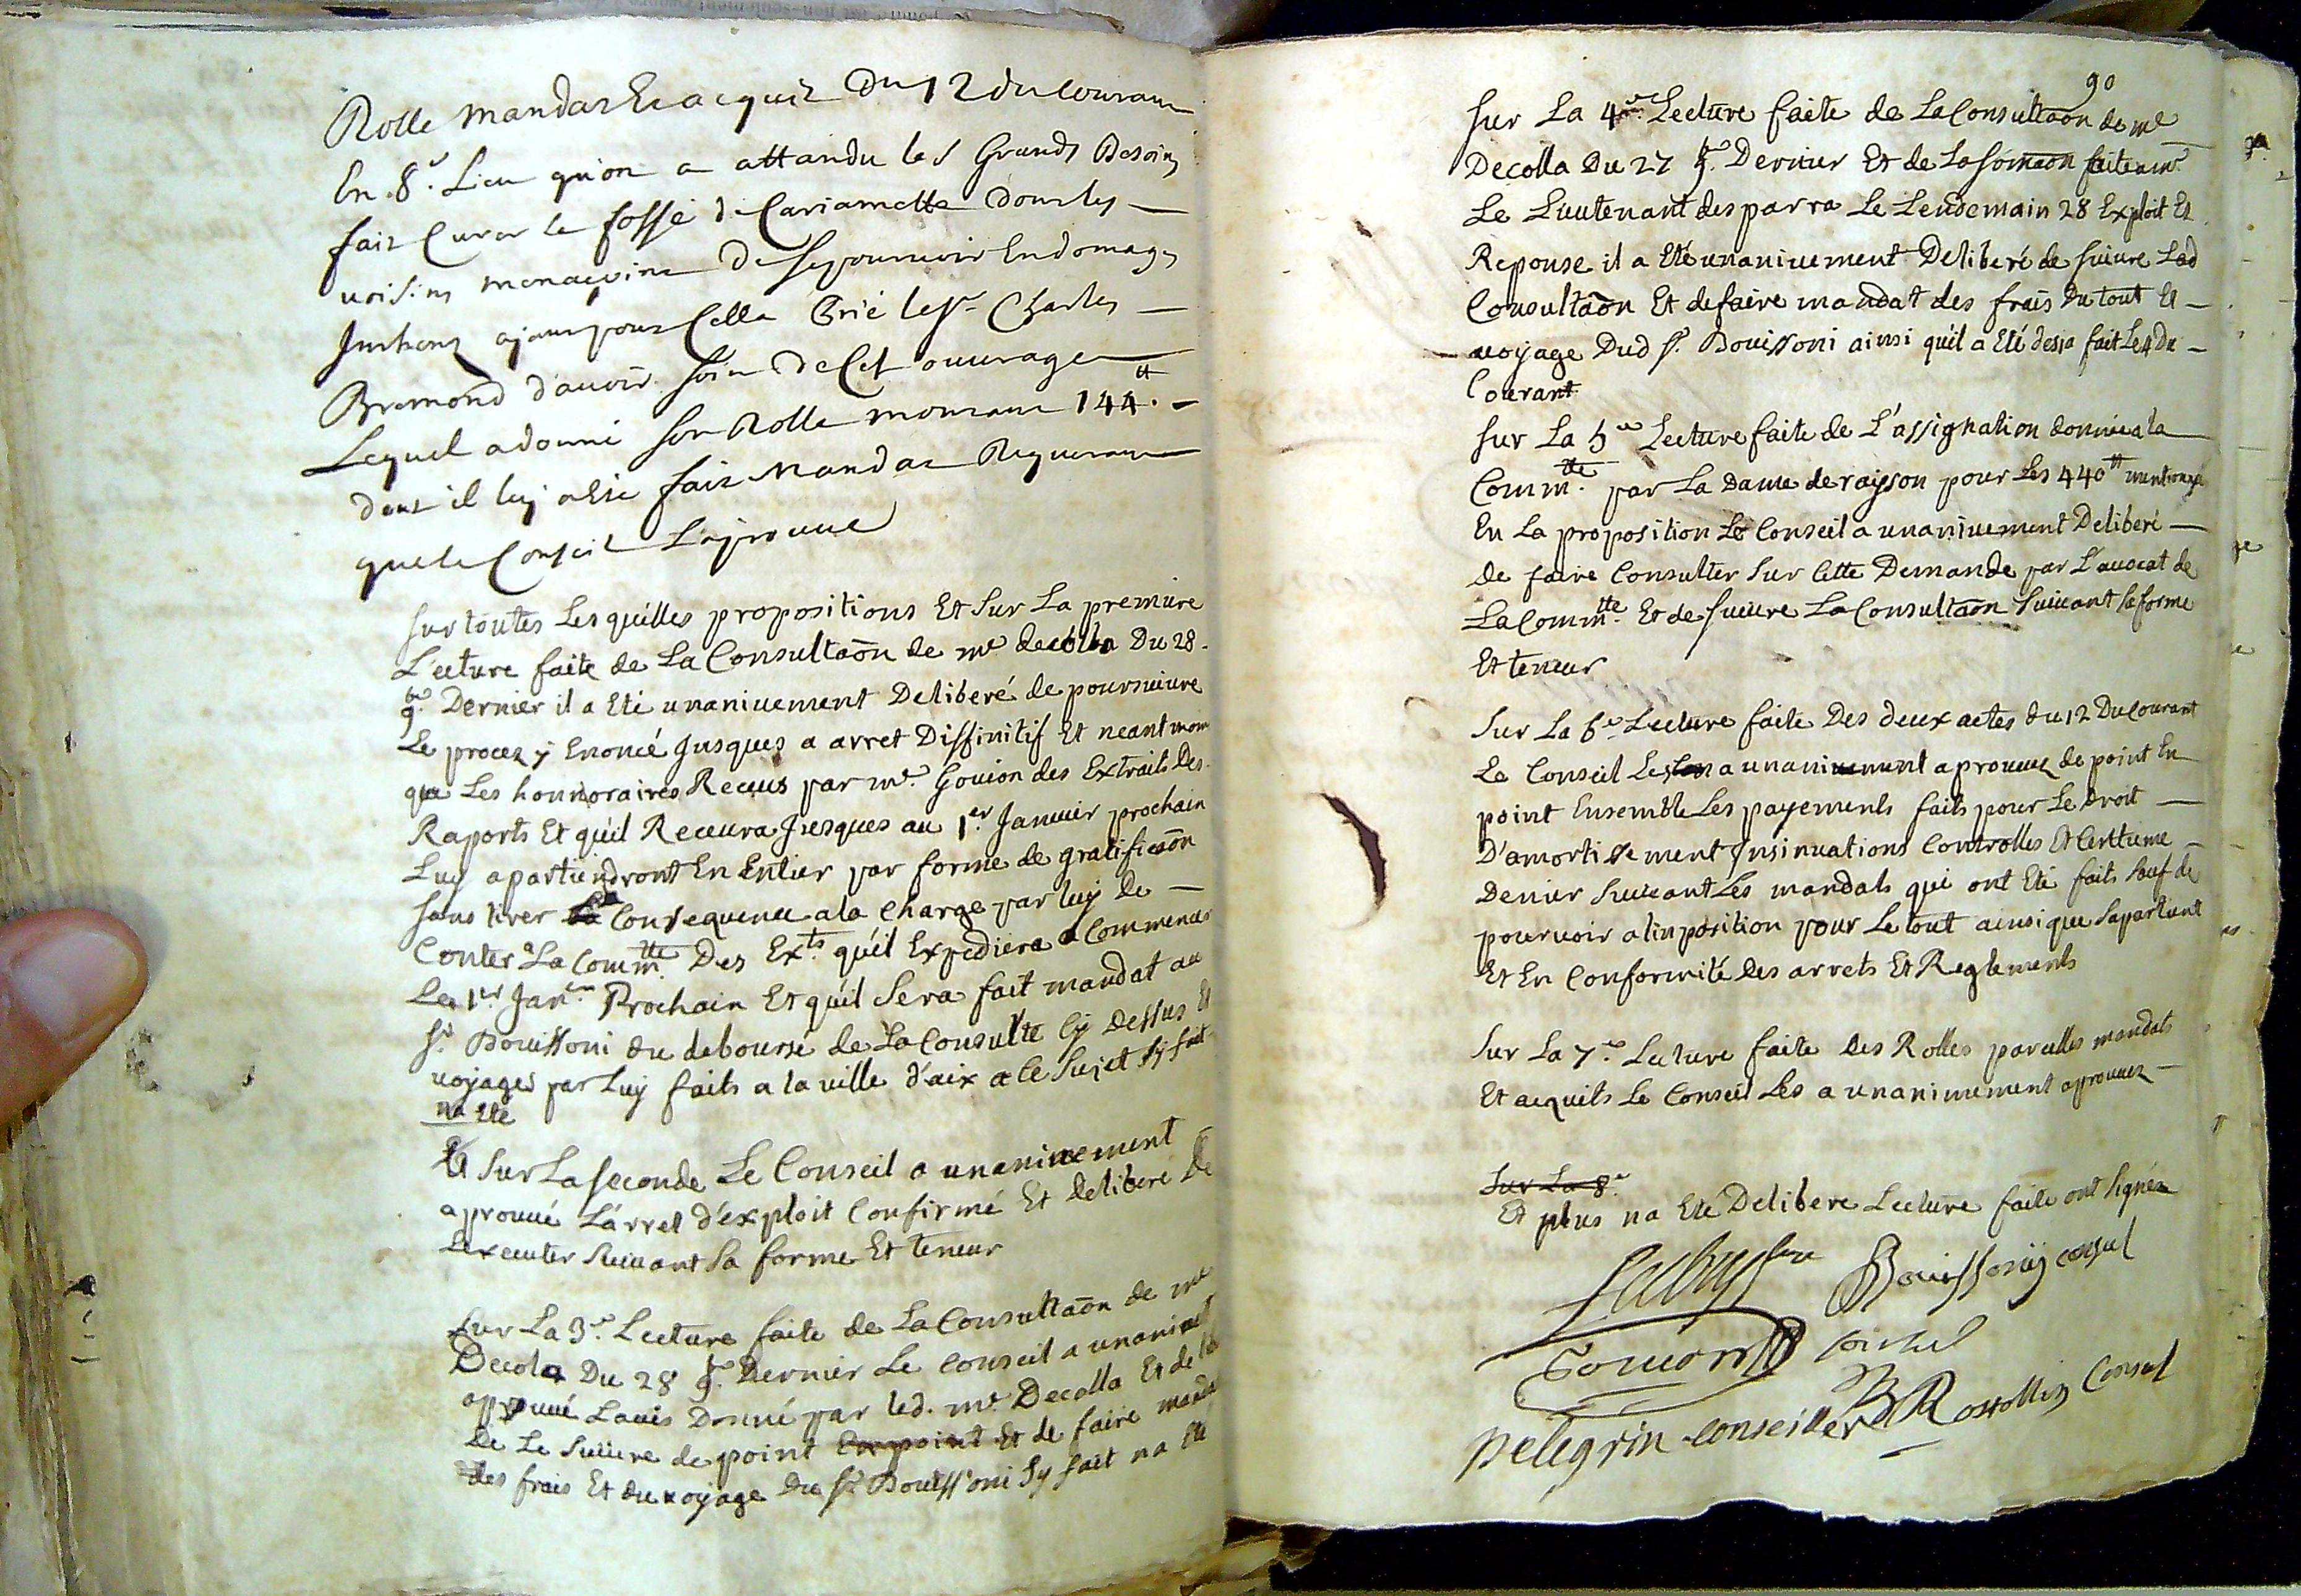 Rolle mandat Et acquit du 12 du Courant
En 8e. Lieu qu'on a attandu les Grands Besoins
fait Curer le fossé de Cariamette dont les
voisins menaçoint de se pourvoir En domages
Interest ajant pour Cella Prié le sr. Charles
Bremond d'avoir soin de Cet ouvrage
Lequel a donné son Rolle montant 144tt. -
dont il luy a Eté fait Mandat Requerant
que le Conseil L'aprouve
sur toutes Les quelles propositions Et sur La premiere
Lecture faite de La Consultaon de me decolla Du 28.
9bre Dernier il a Eté unanivement Deliberé de poursuivre
Le procez y Enoncé Jusques a arret Diffinitif Et neantmoins
que Les honnoraires Receus par me. Gouion des Extraits Des
Raports Et qu'il Recevra Jusques au 1er Janvier prochain
Luy apartiendront En Entier par forme de gratificaon
sans tirer a Consequence a la Charge par luy de
Conter a La Commtté Des Exts. qu'il Expediera a Commencer
Le 1er Janer Prochain Et qu'il sera fait mandat au
sr. Bouissoni du deboursé de La Consulte Cy Dessus Et
voyages par Luy faits a la ville d'aix a Ce sujet sy fait
na Eté
Et sur La seconde Le Conseil a unanivement
aprouvé L'arret d'exploit Confirmé Et Deliberé De
L'executer suivant sa forme Et teneur
Sur La 3e. Lecture faite de La Consultaon de me
Decola Du 28 9bre. Dernier Le Conseil a unanivemt
aprouvé Lavis Donné par led. me Decolla Et de
De Le suivre de point En point Et de faire mandat
des frais Et du voyage Du sr. Bouissoni Sy fait na Eté
90
sur La 4me. Lecture faite de La Consultaon de me
Decolla Du 27 9bre. Dernier Et de La somaon faite a mr.
Le Lieutenant desparra Le Lendemain 28 Exploit Et
Reponse il a Eté unanivement Deliberé de suivre Lad
Consultaon Et de faire mandat des frais Du tout Et -
voyage Dud sr. Bouissoni ainsi qu'il a Eté desja fait Le 4 Du -
Courant
Sur La 5me Lecture faite de L'assignation donnée a la
Commtté. par La Dame de raisson pour Les 440tt mentionés
En La proposition Le Conseil a unanivement Deliberé
De faire Consulter sur Cette Demande par L'avocat de
La Commtté. Et de suivre La Consultaon suivant sa forme
Et teneur
Sur La 6e Lecture faite Des deux actes du 12 Du Courant
Le Conseil Les a unanivement aprouvez de point En
point Ensemble Les payements faits pour Le Droit
D'amortissement Insinuations Controlles Et Centieme
Denier suivant Les mandats qui ont Eté faits sauf de
pourvoir a l'inposition pour Le tout ainsi que s'apartient
Et En Conformité Des arrets Et Reglements
Sur La 7e. Lecture faite Des Rolles parcelles mandats
Et acquits Le Conseil Les a unanimement aprouvez
Sur La 8e.
Et plus na Eté Delibere Lecture faite ont signéz
Bouissoniy consul
Gouion
pelegrin conseiller Rostollin Consul